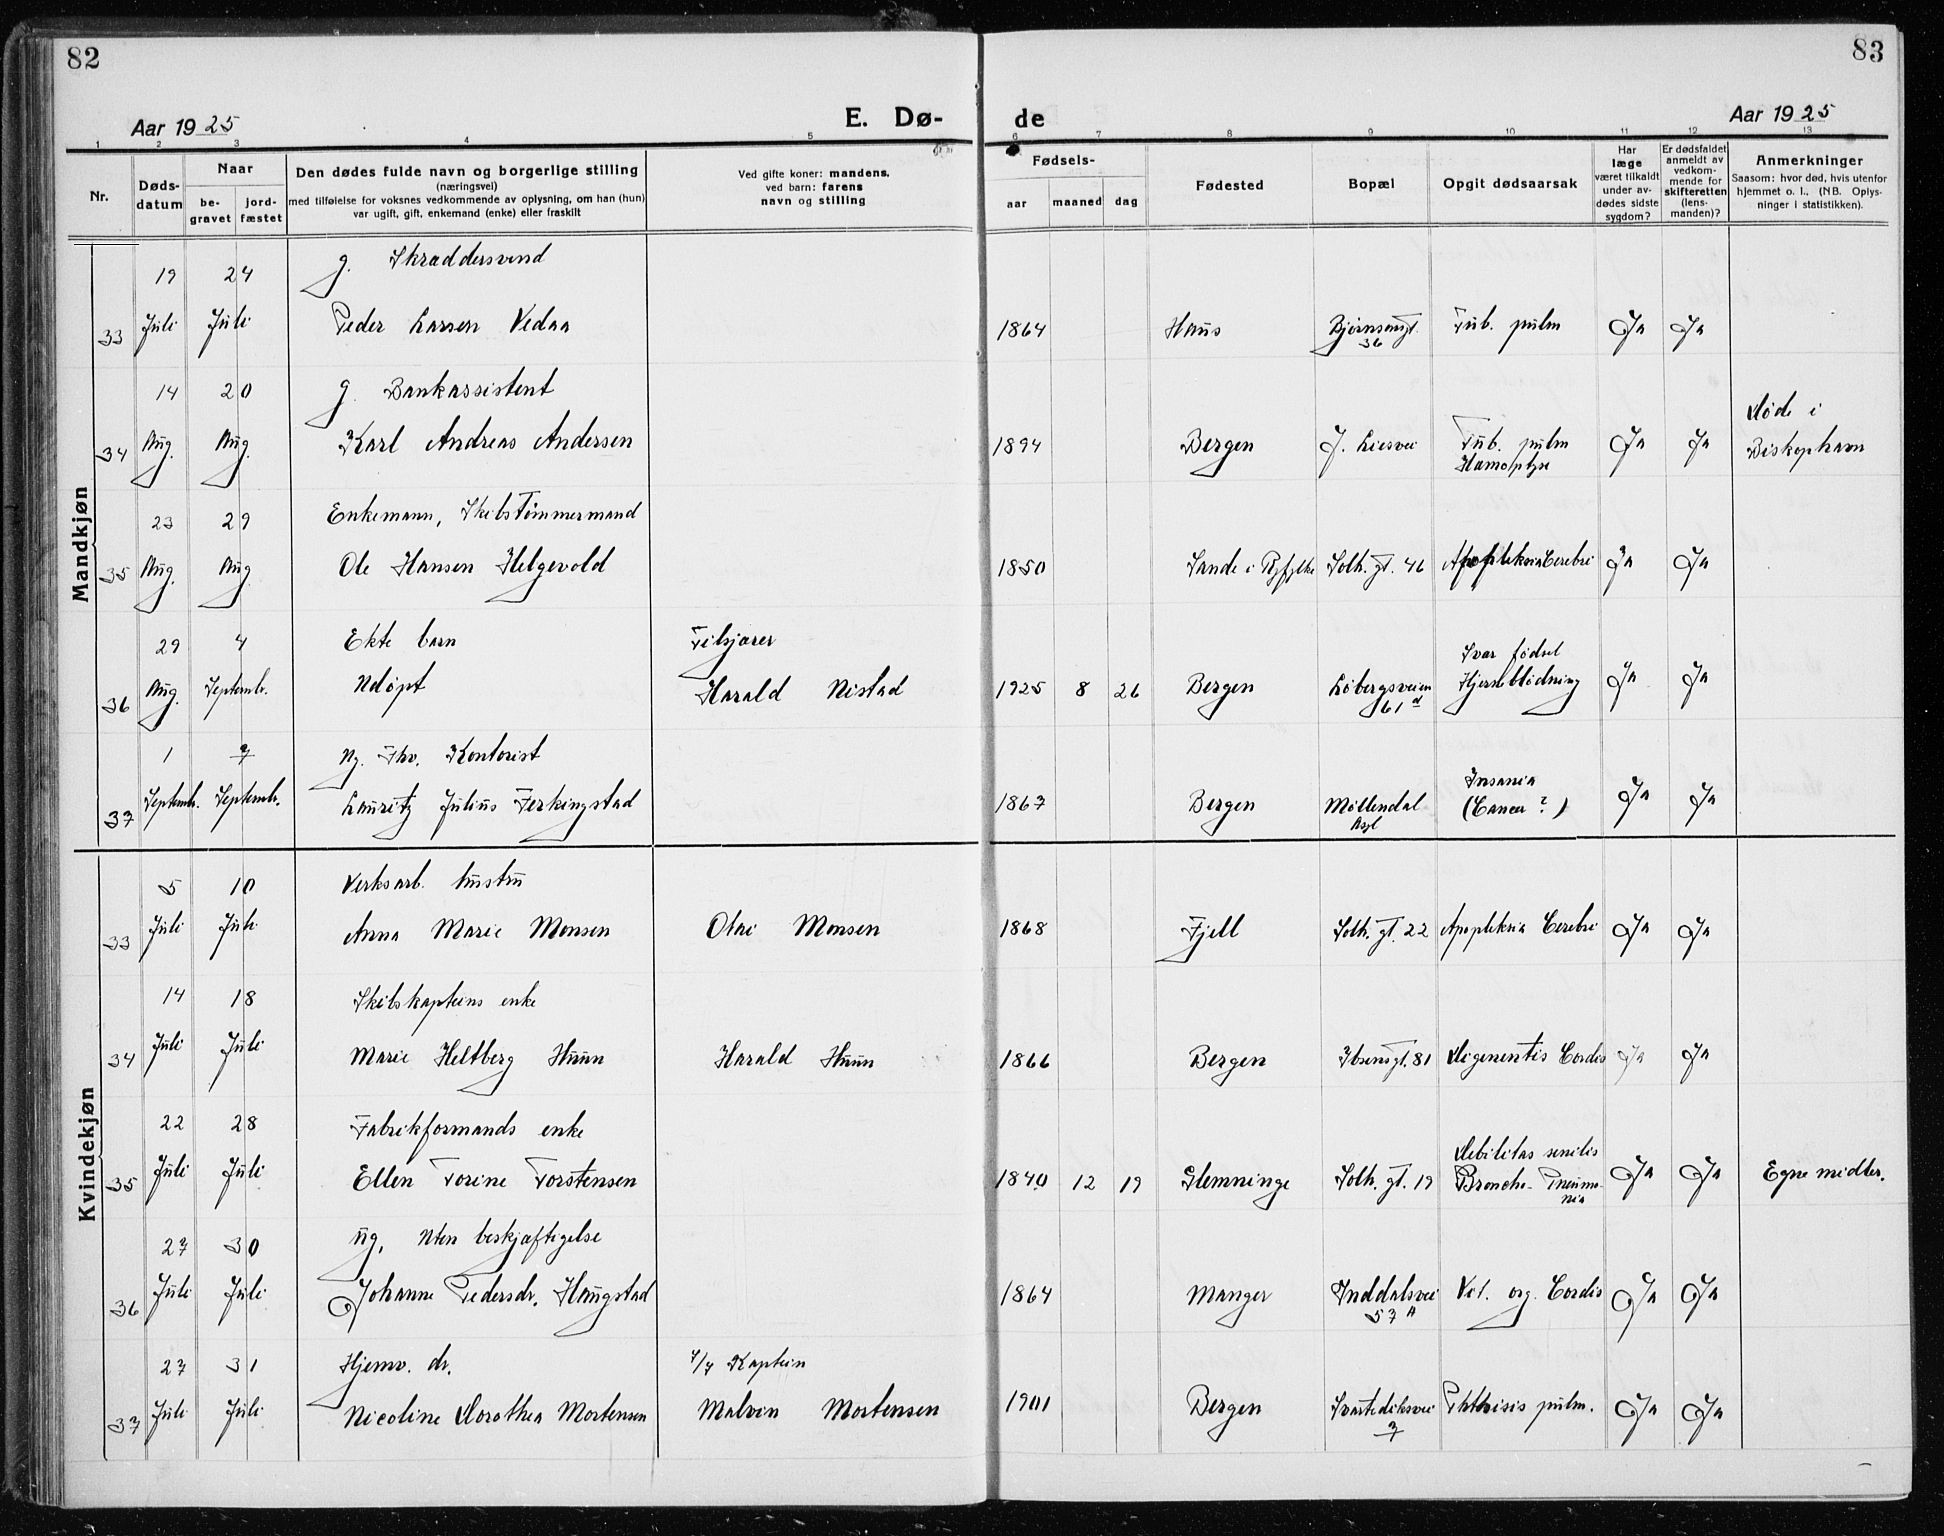 82
83
Aar 1925
E. Dø-
de
Aar 1925
1 2 3 4 5 6 7 8 9 10 11 12 13
Nr.
Døds-
datum
Naar
be-
gravet
jord-
fæstet
Den dødes fulde navn og borgerlige stilling
(næringsvei)
med tilføielse for voksnes vedkommende av oplysning, om han (hun)
var ugift, gift, enkemand (enke) eller fraskilt
Ved gifte koner: mandens.
ved barn: farens
navn og stilling
Fødsels-
aar maaned dag
Fødested
Bopæl
Opgit dødsaarsak
Har
læge
været tilkaldt
under av-
dødes sidste
sygdom?
Er dødsfaldet
anmeldt av
vedkom-
mende for
skifteretten
(lens-
manden)?
Anmerkninger
Saasom: hvor død, hvis utenfor
hjemmet o. l., (NB. Oplys-
ninger i statistikken).
Mandkjøn
19 24 g. Skraddersvend
33 Juli Juli Peder Larsen Vedaa 1864 Haus Bjørnsonsgt. Tub. pulm Ja Ja
36
14 20 g. Bankassistent
Døde i
34 Aug. Aug. Karl Andreas Andersen 1894 Bergen J. Liesvei Tub. pulm Ja Ja Biskophavn
Hämoptyse
23 29 Enkemann, Skibstømmermand
35 Aug. Aug. Ole Hansen Helgevold 1850 Sande i Ryfylke Solh. gt. 46 Apopleksia Cerebri Ja Ja
29 4 Ekte barn
Svar fødsel
36 Aug. Septembr. Udøpt Harald Nistad 1925 8 26 Bergen Løbergsveien Hjerneblødning Ja Ja
61 d
1 7 Ug. Fhv. Kontorist
Insania
37 Septembr. Septembr. Lauritz Julius Ferkingstad 1867 Bergen Møllendal (Cancer ?) Ja Ja
Asyl
Kvindekjøn
5 10 Verksarb. hustru
33 Juli Juli Anna Marie Monsen Olai Monsen 1868 Fjell Solh. gt. 22 Apopleksia Cerebri Ja Ja
14 18 Skibskapteins enke
34 Juli Juli Marie Heltberg Huun Harald Huun 1866 Bergen Ibsensgt. 81 Cordis Ja Ja
22 28 Fabrikformands enke
Debilitas senilis
35 Juli Juli Ellen Torine Torstensen 1840 12 19 Glemminge Solh. gt. 19 Broncho-Pneumo- Ja Ja Egne midler.
nia
27 30 ug. Uten beskjæftigelse
36 Juli Juli Johanne Pedersdr. Haugstad 1864 Manger Inddalsvei Vit. org. Cordis Ja Ja
57 A
27 31 Hjemv. dr. Kaptein
37 Juli Juli Nicoline Dorothea Mortensen Malvin Mortensen 1901 Bergen Svartediksvei Phthisis pulm. Ja Ja
7